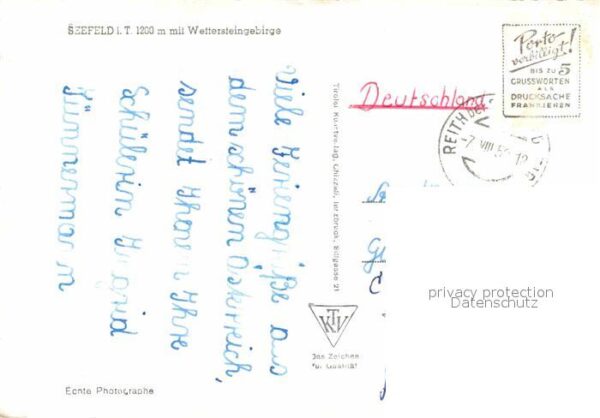 SEEFELD i. T. 1200 m mit Wettersteingebirge
Viele Feriengrüße aus
dem schönen Österreich,
sendet Ihnen Ihre
Schülerin Ingrid
Kümmermann
Echte Photographie
Tiroler Kunstverlag, Chizzali, Innsbruck, Edlgasse 21
KTV
Das Zeichen
für Qualität
Deutschland
Porto
verbilligt!
BIS ZU 5
GRUSSWORTEN
ALS
DRUCKSACHE
FRANKIEREN
REITH BEI
-7. VIII 5
12
privacy protection
Datenschutz